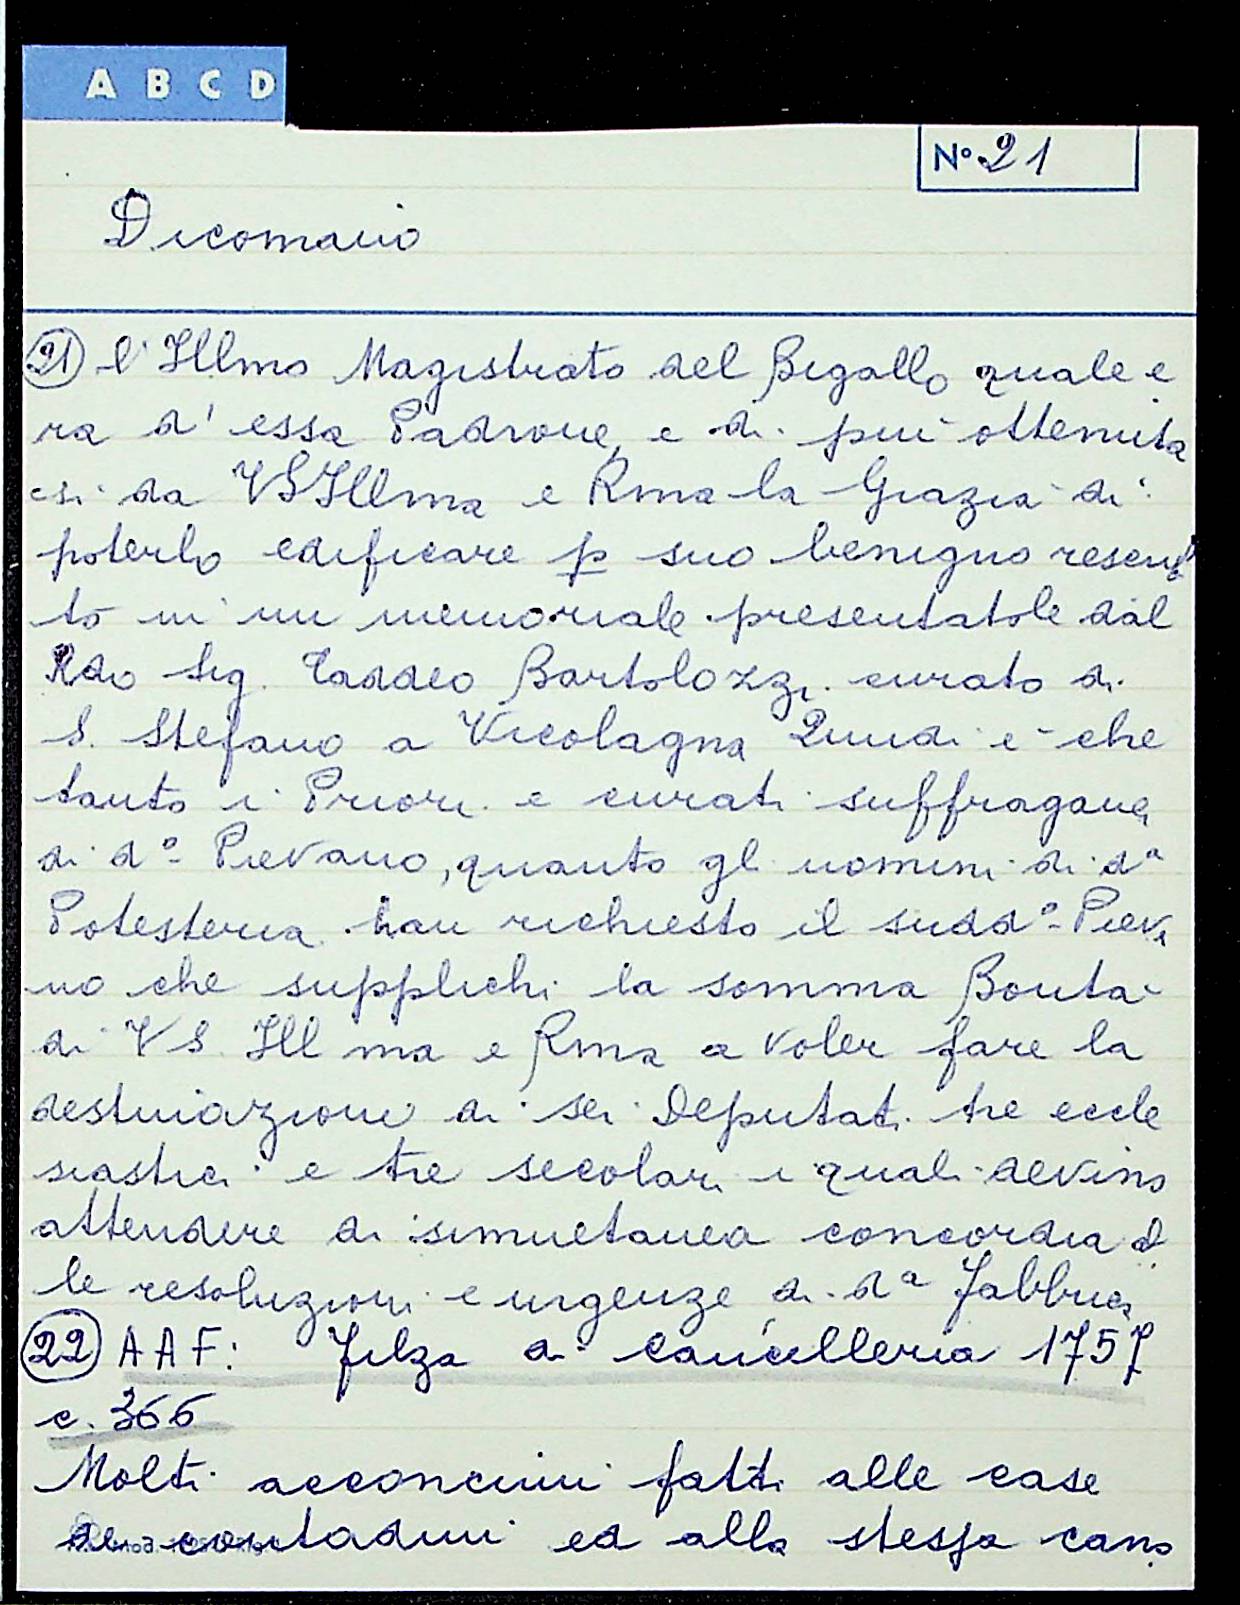 A B C D
N° 21
Dicomano
21) l'Illmo Magistrato del Bigallo quale e
ra d'essa Padrone, e di più ottenuta
si da VSIllma e Rma la Grazia di
poterlo edificare p suo benigno rescrit
to in un memoriale presentatole dal
Rdo Sig. Taddeo Bartolozzi curato di
S. Stefano a Vicolagna Quindi è che
tanto i Priori e curati suffraganei
di d° Pievano, quanto gl uomini di dª
Potesteria han richiesto il sudd° Pieva
no che supplichi la somma Bontà
di VS Illma e Rma a voler fare la
destinazione di sei Deputati tre eccle
siastici e tre secolari i quali devino
attendere di simultanea concordia
le resoluzioni e urgenze di dª fabbrica
22) AAF: Filza di Cancelleria 1757
c. 366
Molti acconcimi fatti alle case
de contadini ed alla stessa cano